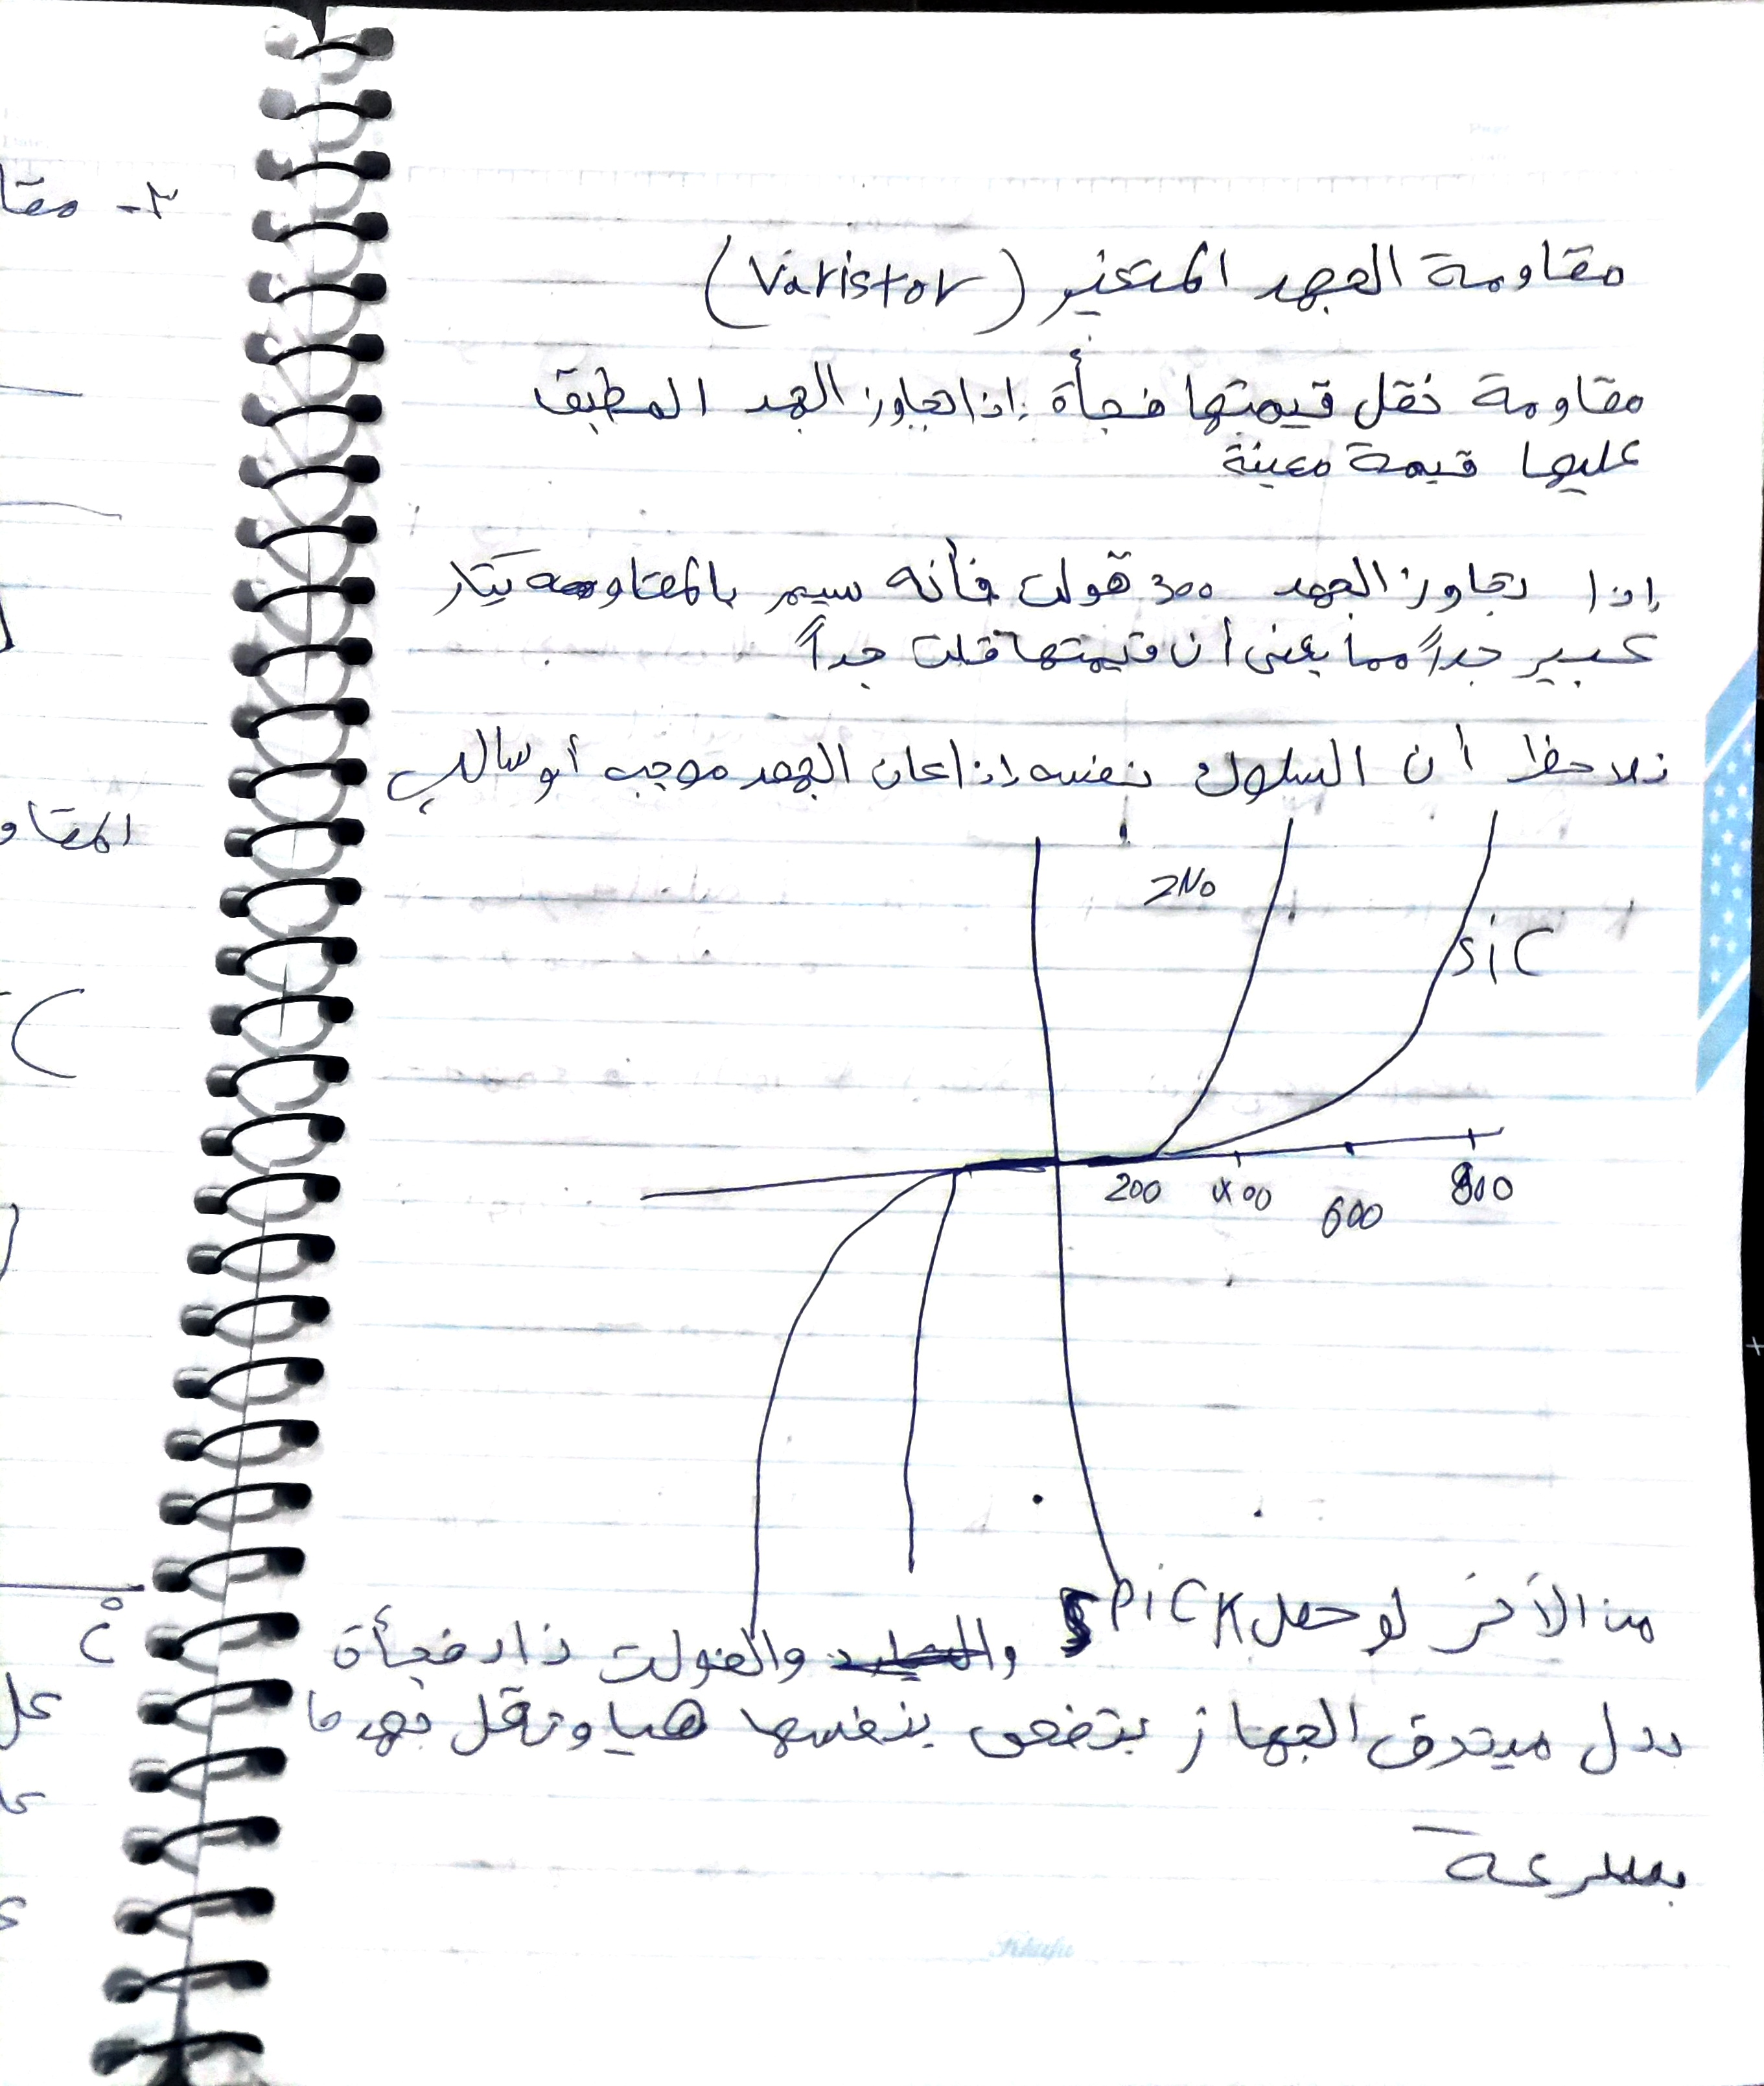 مقاومة الجهد المتغير (Varistor)
مقاومة تقل قيمتها فجأة إذا تجاوز الجهد المطبق
عليها قيمة معينة
إذا تجاوز الجهد 300 فولت فأنه سيمر بالمقاومة تيار
كبير جداً مما يعنى أن قيمتها قلت جداً
نلاحظ أن السلوك نفسه إذا كان الجهد موجب أو سالب
ZNO
SiC
200 400 600 800
من الأخر لو حصل SPiCK والفولت زاد فجأة
بدل ميتحرق الجهاز بتضحى بنفسها هيا وتقل جهدها
بسرعة
٢- مقا
المقاو